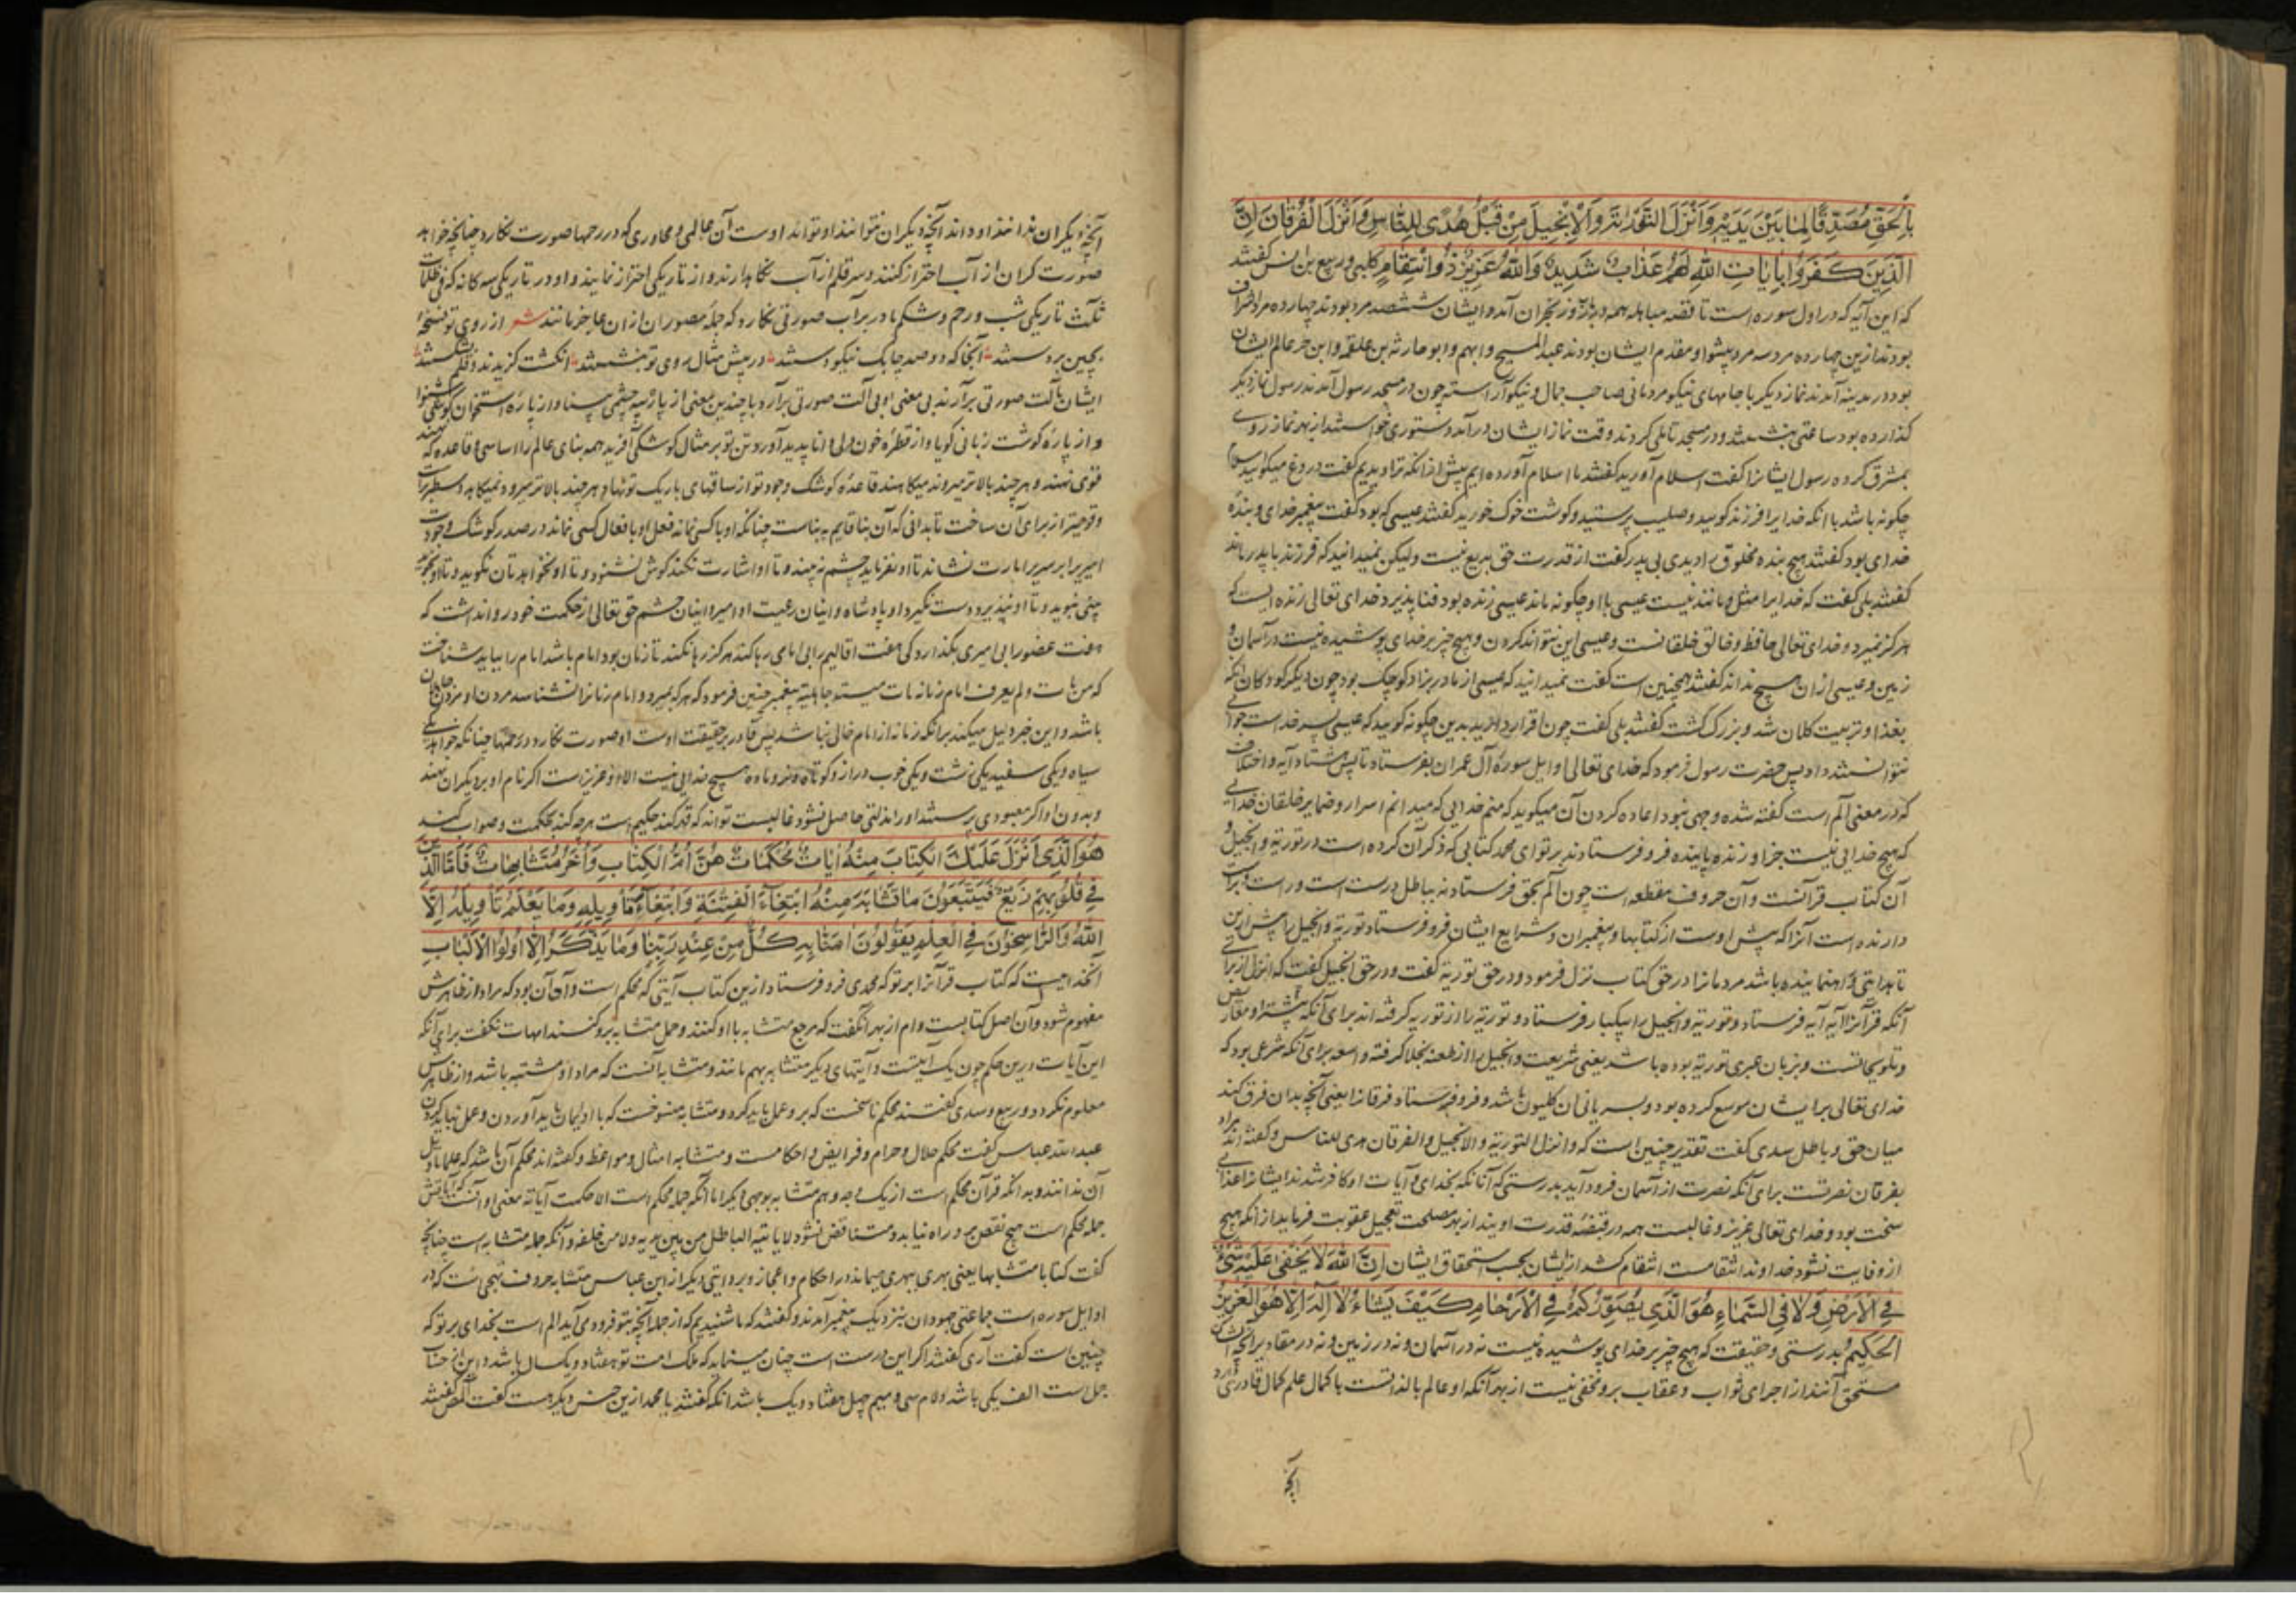 بِالْحَقِّ مُصَدِّقًا لِمَا بَيْنَ يَدَيْهِ وَأَنْزَلَ التَّوْرَاةَ وَالْإِنْجِيلَ مِنْ قَبْلُ هُدًى لِلنَّاسِ وَأَنْزَلَ الْفُرْقَانَ إِنَّ
الَّذِينَ كَفَرُوا بِآيَاتِ اللَّهِ لَهُمْ عَذَابٌ شَدِيدٌ وَاللَّهُ عَزِيزٌ ذُو انْتِقَامٍ کلبی و ربیع بن انس گفتند
که این آیه که در اول سوره است تا قصه مباهله همه در نجران آمد و ایشان ششصد مرد بودند چهارده مرد اشراف
بودند ازین چهارده مرد سه مرد پیشوا و مقدم ایشان بودند عبد المسیح و ایهم و ابو حارثه بن علقمه و این حبر عالم ایشان
بود در مدینه آمدند نماز دیگر با جامهای نیکو مردمانی صاحب جمال و نیکو آراسته چون در مسجد رسول آمدند رسول نماز دیگر
گذارده بود ساعتی بنشستند و در مسجد تاملی کردند وقت نماز ایشان درآمد دستوری خواستند از بهر نماز روی
بمشرق کرده رسول ایشانرا گفت اسلام آورید گفتند ما اسلام آورده ایم پیش از آنکه ترا دیدیم گفت دروغ میگوئید
چگونه باشد با آنکه خدایرا فرزند گویید و صلیب پرستید و گوشت خوک خورید گفتند عیسی که بود گفت پیغمبر خدای و بنده
خدای بود گفتند هیچ بنده مخلوق را دیدی بی پدر گفت از قدرت حق بدیع نیست ولیکن نمیدانید که فرزند با پدر ماند
گفتند بلی گفت که خدایرا مثل و مانند نیست عیسی با او چگونه ماند عیسی زنده بود فنا پذیرد خدای تعالی زنده ایست که
هرگز نمیرد و خدای تعالی حافظ و خالق خلقانست و عیسی این نتواند کردن و هیچ چیز بر خدای پوشیده نیست در آسمان و
زمین و عیسی از ان هیچ نداند گفتند همچنین است گفت نمیدانید که عیسی از مادر بزاد کوچک بود چون دیگر کودکان آنکه
بغذا و تربیت کلان شد و بزرگ گشت گفتند بلی گفت چون اقرار دارید بدین چگونه گویید که عیسی پسر خداست جوابی
نتوانستند داد پس حضرت رسول فرمود که خدای تعالی اوایل سوره آل عمران بفرستاد تا بیش هشتاد آیه و اختلاف
که در معنی الم است گفته شده وجهی نبود اعاده کردن آن میگوید که منم خدایی که میدانم اسرار و ضمایر خلقان خدایی
که هیچ خدایی نیست جز او زنده پاینده فرو فرستادند بر تو ای محمد کتابی که ذکر آن کرده است در توریة و انجیل و
آن کتاب قرآنست و آن حروف مقطعه است چون الم بحق فرستاد نه بباطل درست است و راست
دارنده است آنرا که پیش اوست از کتابها و پیغمبران و شرایع ایشان فرو فرستاد توریة و انجیل را پیش ازین
تا هدایتی و راهنماینده باشد مردمانرا در حق کتاب نزل فرمود و در حق توریة گفت و در حق انجیل گفت که انزل از برای
آنکه قرآنرا آیه آیه فرستاد و توریة و انجیل را بیکبار فرستاد و توریة را از توریه گرفته اند برای آنکه بیشتر او معاریض
و تلویحاتست و بزبان عبری توریة بوده باشد یعنی شریعت و انجیل را از طعنه نجلا گرفته واسعه برای آنکه شرعی بود که
خدای تعالی برایشان موسع کرده بود و بسریانی آن کلیون باشد و فرو فرستاد فرقانرا یعنی آنچه بدان فرق کنند
میان حق و باطل سدی گفت تقدیر چنین است که و انزل التوریة و الانجیل و الفرقان هدی للناس و گفته اند مراد
بفرقان نصرتست برای آنکه نصرت از آسمان فرود آید بدرستی که آنانکه بخدای و آیات او کافر شدند ایشانرا عذابی
سخت بود و خدای تعالی عزیز و غالبست همه در قبضه قدرت اویند از بهر مصلحت تعجیل عقوبت فرماید از آنکه هیچ
ازو فایت نشود خداوند انتقامست انتقام کشد از ایشان بحسب استحقاق ایشان إِنَّ اللَّهَ لَا يَخْفَى عَلَيْهِ شَيْءٌ
فِي الْأَرْضِ وَلَا فِي السَّمَاءِ هُوَ الَّذِي يُصَوِّرُكُمْ فِي الْأَرْحَامِ كَيْفَ يَشَاءُ لَا إِلَهَ إِلَّا هُوَ الْعَزِيزُ
الْحَكِيمُ بدرستی و حقیقت که هیچ چیز بر خدای پوشیده نیست نه در آسمان و نه در زمین و نه در مقادیر آنچه ایشان
مستحق آنند از اجرای ثواب و عقاب برو مخفی نیست از بهر آنکه او عالم بالذاتست با کمال علم کمال قادری دارد
آنچه
آنچه دیگران ندانند او داند آنچه دیگران نتوانند او تواند اوست آن که در رحمها صورت نگارد چنانچه خواهد
صورت گران از آب احتراز کنند و سر قلم از آب نگاهدارند و از تاریکی احتراز نمایند و او در تاریکی سه گانه که فی ظلمات
ثلث تاریکی شب و رحم و شکم مادر بر آب صورتی نگارد که جمله مصوران از ان عاجز مانند شعر از روی تو نسخه
بچین بردستند آنجا که دو صد چابک نیکو دستند در پیش مثال روی تو بنشستند انگشت گزیدند و قلم بشکستند
ایشان بآلت صورتی برآرند بی معنی او بی آلت صورتی برآرد با چندین معنی از پاره پیه چشمی بینا و از پاره استخوان گوشی شنوا
و از پاره گوشت زبانی گویا و از قطره خون دلی دانا پدید آورد و تن تو بر مثال کوشکی آفرید همه بنای عالم را اساسی و قاعده که نهند
قوی نهند و هر چند بالاتر میروند میکاهند قاعده کوشک وجود تو از ساقهای باریک تو نهاد و هر چند بالاتر میرود نمیکاهد و سطبرتر
از برای آن ساخت تا بدانی که آن بنا قایم به بناست چنانکه او با کسی نماند فعل او با فعال کسی نماند در صدر کوشک وجودت
امیری برابر سریر امارت نشاند تا او نفرماید چشم نه بیند و تا او اشارت نکند گوش نشنود و تا او نخواهد زبان نگوید و تا او نجوید
بینی نبوید و تا او نپذیرد دست نگیرد او پادشاه و اینان رعیت او امیر و اینان حشم حق تعالی از حکمت خود روا نداشت که
هفت عضو را بی امیری بگذارد کی هفت اقالیم را بی امامی رها کند هرگز رها نکند تا زمان بود امام باشد امام را بباید شناخت
که من مات و لم یعرف امام زمانه مات میتة جاهلیة پیغمبر چنین فرمود که هر که بمیرد و امام زمانرا نشناسد مردن او مردن جاهلان
باشد و این خبر دلیل میکند برانکه زمانه از امام خالی نباشد پس قادر بر حقیقت اوست او صورت نگارد در رحمها چنانکه خواهد یکی
سیاه و یکی سفید یکی زشت و یکی خوب دراز و کوتاه و نر و ماده هیچ خدایی نیست الا او عزیز است اگر نام او بر دیگران نهند
و بدون او اگر معبودی پرستند او را مذلتی حاصل نشود غالبست تواند که قهر کند حکیم است هرچه کند بحکمت و صواب کند
هُوَ الَّذِي أَنْزَلَ عَلَيْكَ الْكِتَابَ مِنْهُ آيَاتٌ مُحْكَمَاتٌ هُنَّ أُمُّ الْكِتَابِ وَأُخَرُ مُتَشَابِهَاتٌ فَأَمَّا الَّذِينَ
فِي قُلُوبِهِمْ زَيْغٌ فَيَتَّبِعُونَ مَا تَشَابَهَ مِنْهُ ابْتِغَاءَ الْفِتْنَةِ وَابْتِغَاءَ تَأْوِيلِهِ وَمَا يَعْلَمُ تَأْوِيلَهُ إِلَّا
اللَّهُ وَالرَّاسِخُونَ فِي الْعِلْمِ يَقُولُونَ آمَنَّا بِهِ كُلٌّ مِنْ عِنْدِ رَبِّنَا وَمَا يَذَّكَّرُ إِلَّا أُولُو الْأَلْبَابِ
آنخدائیست که کتاب قرآنرا بر تو که محمدی فرو فرستاد ازین کتاب آیتی که محکم است و آن آن بود که مراد از ظاهرش
مفهوم شود و آن اصل کتابست و ام از بهر آن گفت که مرجع متشابه با او کنند و حمل متشابه برو کنند امهات نگفت برای آنکه
این آیات درین حکم چون یک آیتست و آیتهای دیگر متشابه بهم مانند و متشابه آنست که مراد او مشتبه باشد و از ظاهرش
معلوم نگردد و ربیع و سدی گفتند محکم ناسخست که برو عمل باید کرد و متشابه منسوخست که با او ایمان باید آوردن و عمل نباید کردن
عبد الله عباس گفت محکم حلال و حرام و فرایض و احکامست و متشابه امثال و مواعظ و گفته اند محکم آن باشد که علما تاویل
آن ندانند و بدانکه قرآن محکم است از یک وجه و هم متشابه بوجهی دیگر اما آنکه جمله محکم است الا احکمت آیاته معنی او آنست که آیاتش
جمله محکم است هیچ نقص برو راه نیابد و متناقض نشود لا یاتیه الباطل من بین یدیه و لا من خلفه و آنکه جمله متشابه است چنانچه
گفت کتابا متشابها یعنی بهری ببهری میماند در احکام و اعجاز و بروایتی دیگر از ابن عباس متشابه حروف تهجی است که در
اوایل سوره است جماعتی جهودان بنزدیک پیغمبر آمدند و گفتند که ما شنیدیم که از جمله آنچه بتو فرود می آید الم است بخدای بر تو که
چنین است گفت آری گفتند اگر این درست است چنان مینماید که ملک امت تو هفتاد و یکسال باشد و این از حساب
جمل است الف یکی باشد و لام سی و میم چهل هفتاد و یک باشد آنکه گفتند یا محمد ازین جنس دیگر هست گفت المص گفتند